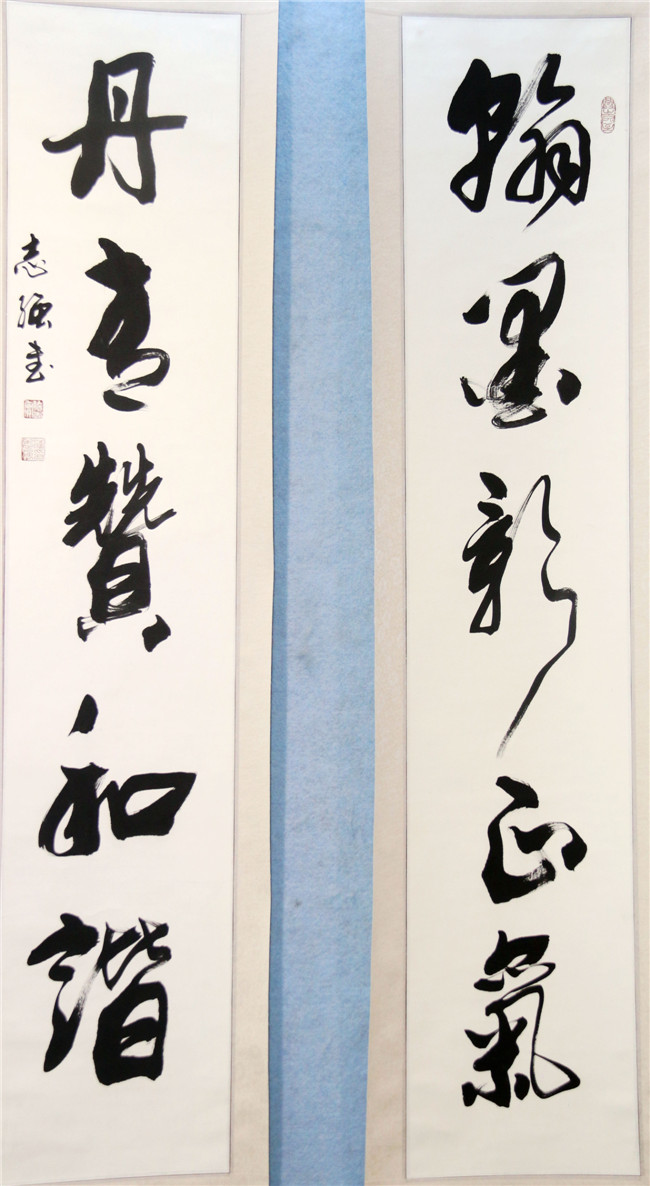 翰墨彰正氣
丹青贊和諧
志强書